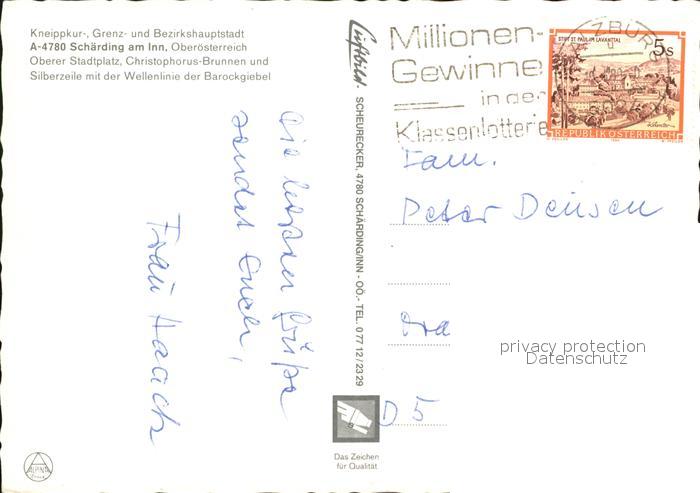 Kneippkur-, Grenz- und Bezirkshauptstadt
A-4780 Schärding am Inn, Oberösterreich
Oberer Stadtplatz, Christophorus-Brunnen und
Silberzeile mit der Wellenlinie der Barockgiebel
Die besten Grüße
sendet Euch,
Frau Haack
Luftbild - SCHEURECKER, 4780 SCHÄRDING/INN - OÖ.- TEL. 0 77 12 / 23 29
Millionen-
Gewinne
in der
Klassenlotterie
ZBURG
STIFT ST. PAUL IM LAVANTTAL
5s
REPUBLIK ÖSTERREICH
Fam.
Peter Densen
privacy protection
Datenschutz
D 5
ALPINA
DRUCK
Das Zeichen
für Qualität